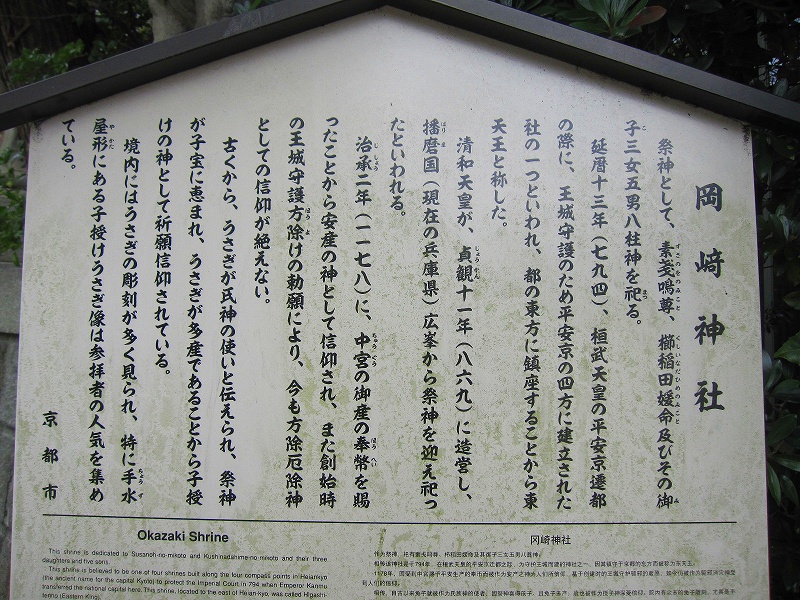 岡﨑神社
祭神として、素戔嗚尊、櫛稲田媛命及びその御
子三女五男八柱神を祀る。
延暦十三年（七九四）、桓武天皇の平安京遷都
の際に、王城守護のため平安京の四方に建立された
社の一つといわれ、都の東方に鎮座することから東
天王と称した。
清和天皇が、貞観十一年（八六九）に造営し、
播磨国（現在の兵庫県）広峯から祭神を迎え祀っ
たといわれる。
治承二年（一一七八）に、中宮の御産の奉幣を賜
ったことから安産の神として信仰され、また創始時
の王城守護方除けの勅願により、今も方除厄除神
としての信仰が絶えない。
古くから、うさぎが氏神の使いと伝えられ、祭神
が子宝に恵まれ、うさぎが多産であることから子授
けの神として祈願信仰されている。
境内にはうさぎの彫刻が多く見られ、特に手水
屋形にある子授けうさぎ像は参拝者の人気を集め
ている。
京都市
Okazaki Shrine
This shrine is dedicated to Susanoh-no-mikoto and Kushinadahime-no-mikoto and their three
daughters and five sons.
This shrine is believed to be one of four shrines built along the four compass points in Heiankyo
(the ancient name for the capital Kyoto) to protect the Imperial Court in 794 when Emperor Kanmu
transferred the national capital here. This shrine, located to the east of Heian-kyo, was called Higashi-
tenno (Eastern King).
冈崎神社